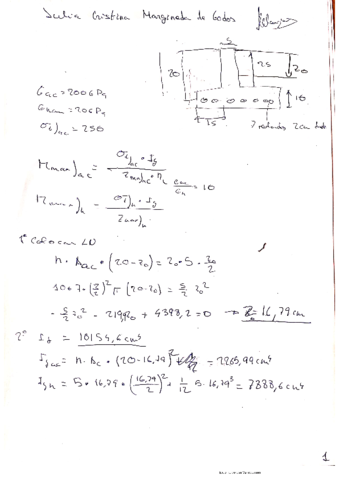 Julia Cristina Marginada de Godos
5
20
25
Z₀
10
15
7 redondos 2cm
Eac = 200 GPa
Ehm = 20 GPa
σi)ac = 250
Mmax)ac = σi)ac · If / Zmax)ac · n
Eac / Eh = 10
Mmax)h = σi)h · If / Zmax)h
1º Colocar LN
n · Aac · (20-z₀) = z₀ · 5 · z₀/2
10 · 7 · (2/2)² π (20-z₀) = 5/2 z₀²
- 5/2 z₀² - 219,9 z₀ + 4398,2 = 0 → Z₀ = 16,79 cm
2º If = 10154,6 cm⁴
If ac = n · Ac · (20-16,79)² = 2265,99 cm⁴
If h = 5 · 16,79 · (16,79/2)² + 1/12 5 · 16,79³ = 7888,6 cm⁴
1